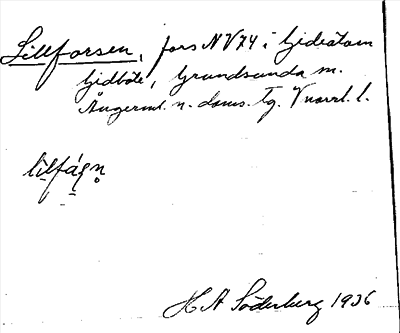 Lillforsen, fors NV74 i Gideåtom
Gidböle, Grundsunda sn.
Ångerml. n. doms. tg. Vnorrl. l.
lilfάςn
H A Söderberg 1936